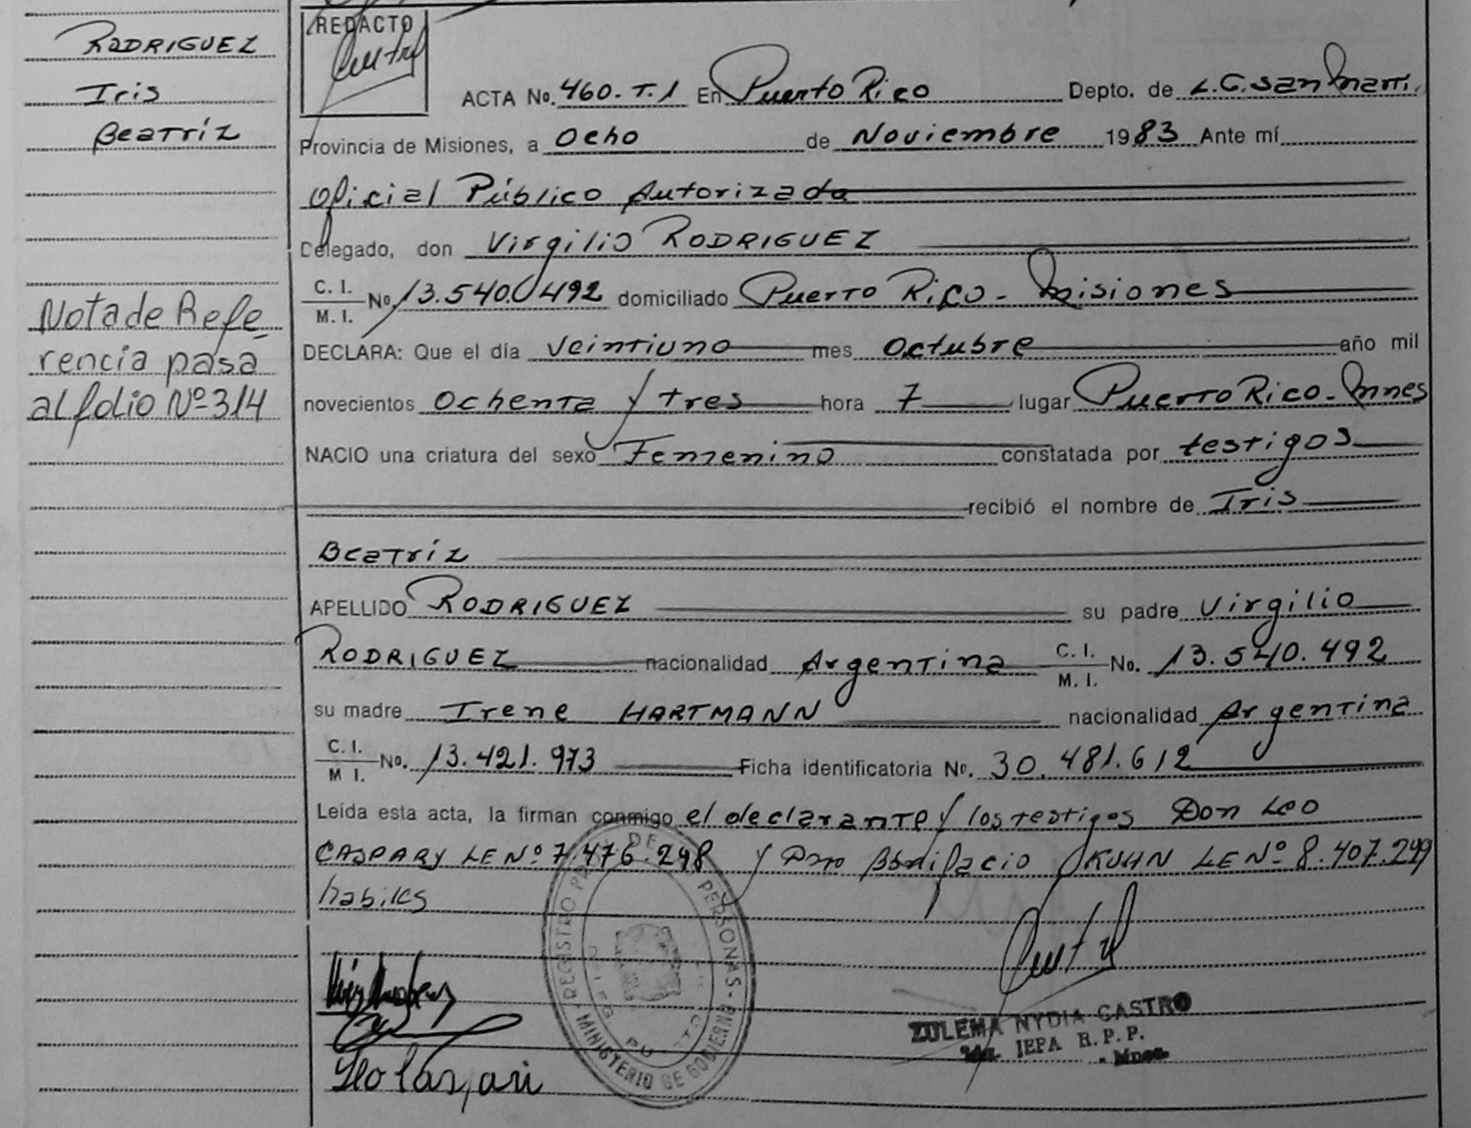 RODRIGUEZ
Iris
Beatríz
Nota de Refe-
rencia pasa
al folio Nº 314
REDACTO
ACTA No. 460. T. 1 En Puerto Rico Depto. de L.G. San Martí.
Provincia de Misiones, a Ocho de Noviembre 1983 Ante mí
Oficial Público Autorizada
Delegado, don Virgilio RODRIGUEZ
C. I.
M. I. No. 13.540.492 domiciliado Puerto Rico - Misiones
DECLARA: Que el día Veintiuno mes Octubre año mil
novecientos Ochenta y tres hora 7 lugar Puerto Rico - Mnes
NACIO una criatura del sexo Femenino constatada por testigos
recibió el nombre de Iris
Beatríz
APELLIDO RODRIGUEZ su padre Virgilio
RODRIGUEZ nacionalidad Argentina C. I. M. I. No. 13.540.492
su madre Irene HARTMANN nacionalidad Argentina
C. I. M I. No. 13.421.973 Ficha identificatoria No. 30.481.612
Leída esta acta, la firman conmigo el declarante y los testigos Don Leo
CASPARY LE Nº 7.476.298 y Don Bonifacio KUHN LE Nº 8.407.299
habiles
REGISTRO DE PERSONAS - MINISTERIO DE GOBIERNO
ZULEMA NYDIA CASTRO
JEFA R. P. P.
Mnes.